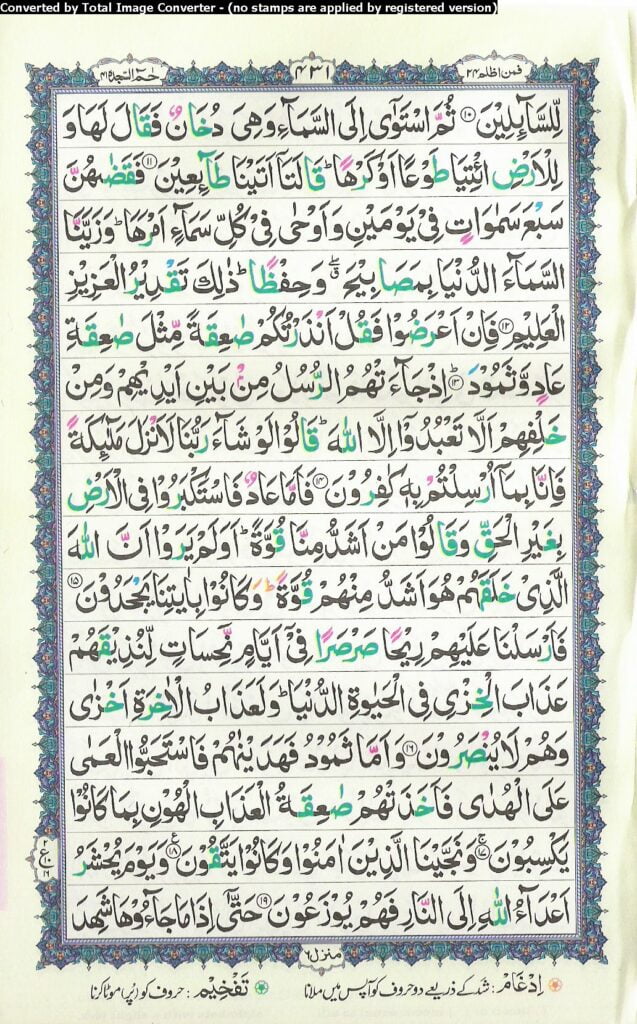 Converted by Total Image Converter - (no stamps are applied by registered version)
فمن اظلم ۲۴
۴۳۱
حٰمٓ السجدة ۴۱
لِّلسَّآئِلِیْنَ ۱۰ ثُمَّ اسْتَوٰۤی اِلَی السَّمَآءِ وَهِیَ دُخَانٌ فَقَالَ لَهَا وَ
لِلْاَرْضِ ائْتِیَا طَوْعًا اَوْ كَرْهًا ؕ قَالَتَاۤ اَتَیْنَا طَآئِعِیْنَ ۱۱ فَقَضٰىهُنَّ
سَبْعَ سَمٰوَاتٍ فِیْ یَوْمَیْنِ وَاَوْحٰی فِیْ كُلِّ سَمَآءٍ اَمْرَهَا ؕ وَزَیَّنَّا
السَّمَآءَ الدُّنْیَا بِمَصَابِیْحَ ۖۗ وَحِفْظًا ؕ ذٰلِكَ تَقْدِیْرُ الْعَزِیْزِ
الْعَلِیْمِ ۱۲ فَاِنْ اَعْرَضُوْا فَقُلْ اَنْذَرْتُكُمْ صٰعِقَةً مِّثْلَ صٰعِقَةِ
عَادٍ وَّثَمُوْدَ ؕ ۱۳ اِذْ جَآءَتْهُمُ الرُّسُلُ مِنْۢ بَیْنِ اَیْدِیْهِمْ وَمِنْ
خَلْفِهِمْ اَلَّا تَعْبُدُوْۤا اِلَّا اللّٰهَ ؕ قَالُوْا لَوْ شَآءَ رَبُّنَا لَاَنْزَلَ مَلٰٓئِكَةً
فَاِنَّا بِمَاۤ اُرْسِلْتُمْ بِهٖ كٰفِرُوْنَ ۱۴ فَاَمَّا عَادٌ فَاسْتَكْبَرُوْا فِی الْاَرْضِ
بِغَیْرِ الْحَقِّ وَقَالُوْا مَنْ اَشَدُّ مِنَّا قُوَّةً ؕ اَوَلَمْ یَرَوْا اَنَّ اللّٰهَ
الَّذِیْ خَلَقَهُمْ هُوَ اَشَدُّ مِنْهُمْ قُوَّةً ؕ وَكَانُوْا بِاٰیٰتِنَا یَجْحَدُوْنَ ۱۵
فَاَرْسَلْنَا عَلَیْهِمْ رِیْحًا صَرْصَرًا فِیْۤ اَیَّامٍ نَّحِسَاتٍ لِّنُذِیْقَهُمْ
عَذَابَ الْخِزْیِ فِی الْحَیٰوةِ الدُّنْیَا ؕ وَلَعَذَابُ الْاٰخِرَةِ اَخْزٰی
وَهُمْ لَا یُنْصَرُوْنَ ۱۶ وَاَمَّا ثَمُوْدُ فَهَدَیْنٰهُمْ فَاسْتَحَبُّوا الْعَمٰی
عَلَی الْهُدٰی فَاَخَذَتْهُمْ صٰعِقَةُ الْعَذَابِ الْهُوْنِ بِمَا كَانُوْا
یَكْسِبُوْنَ ۚ ۱۷ وَنَجَّیْنَا الَّذِیْنَ اٰمَنُوْا وَكَانُوْا یَتَّقُوْنَ ۱۸ ع وَیَوْمَ یُحْشَرُ
اَعْدَآءُ اللّٰهِ اِلَی النَّارِ فَهُمْ یُوْزَعُوْنَ ۱۹ حَتّٰۤی اِذَا مَا جَآءُوْهَا شَهِدَ
منزل ۶
اِدْغَام: شد کے ذریعے دو حروف کو آپس میں ملانا
تَفْخِیم: حروف کو (پُر) موٹا کرنا